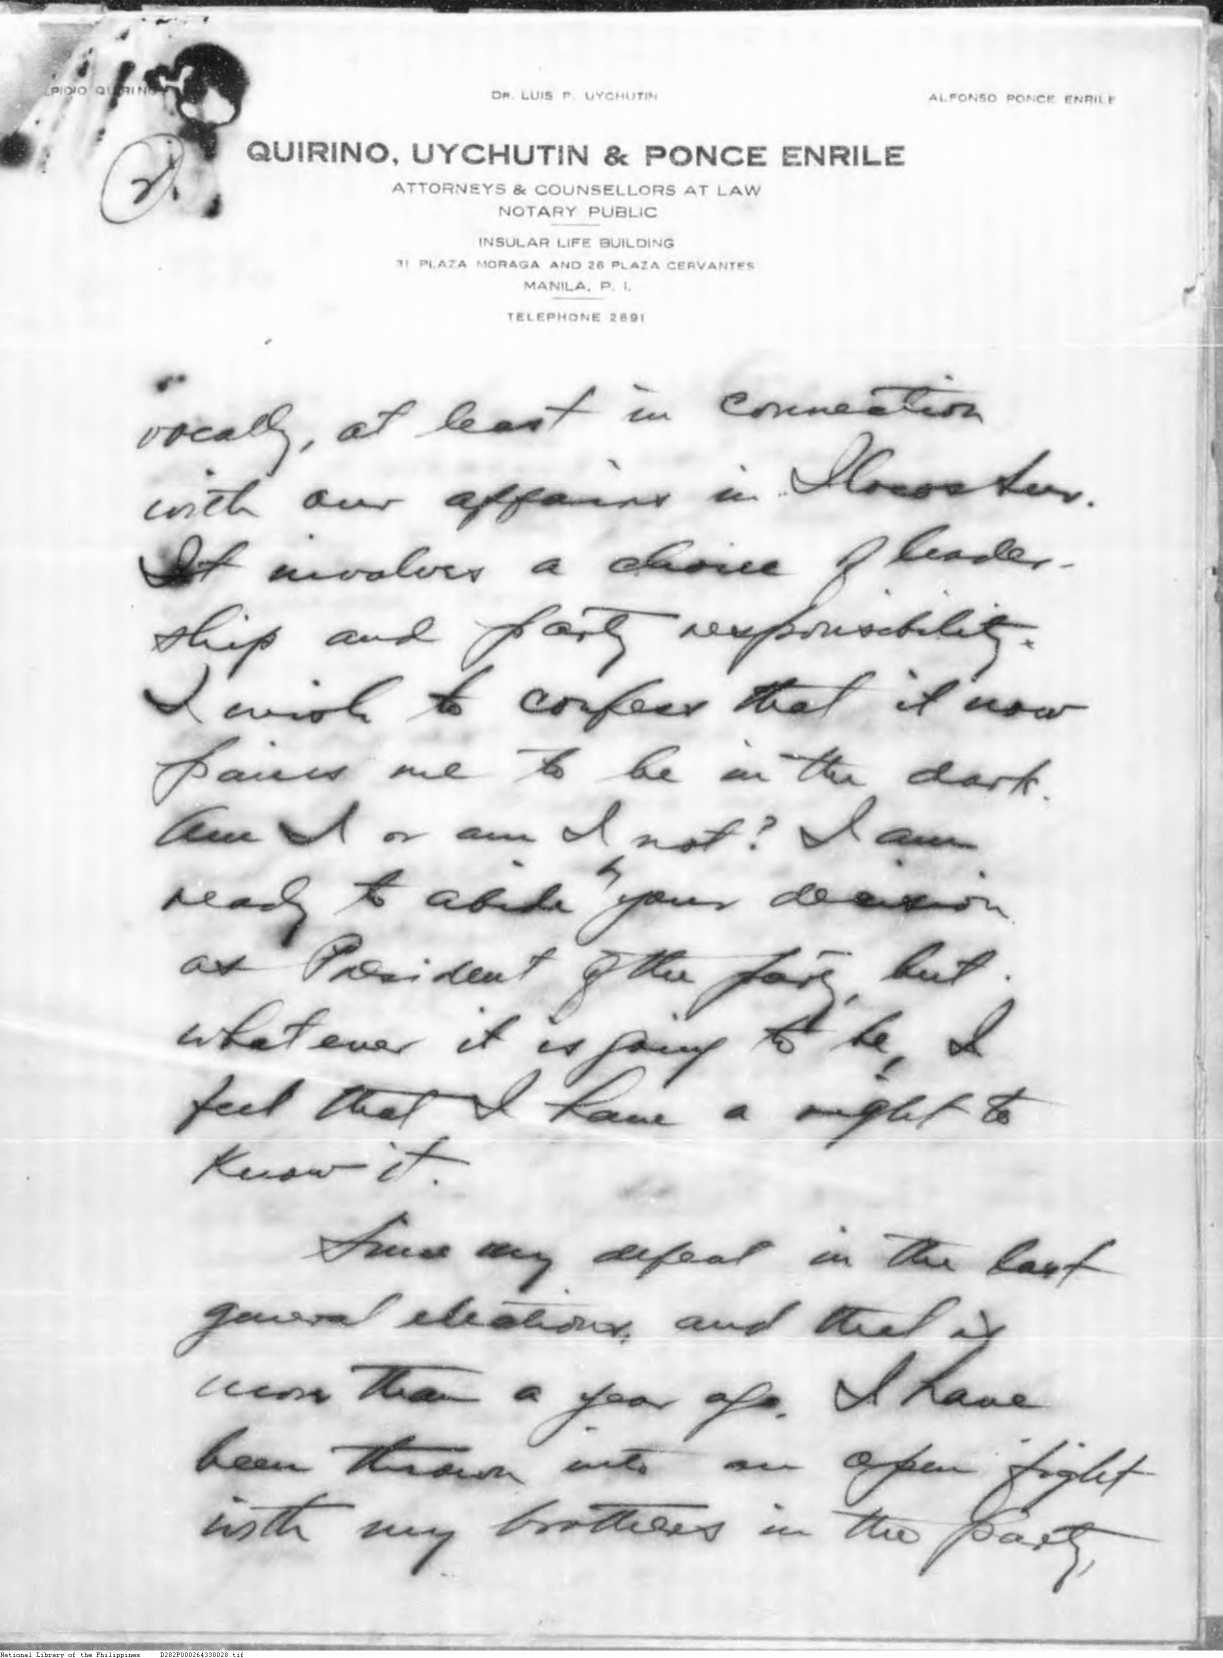 ELPIDIO QUIRINO
DR. LUIS P. UYCHUTIN
ALFONSO PONCE ENRILE
2.
QUIRINO, UYCHUTIN & PONCE ENRILE
ATTORNEYS & COUNSELLORS AT LAW
NOTARY PUBLIC
INSULAR LIFE BUILDING
31 PLAZA MORAGA AND 26 PLAZA CERVANTES
MANILA, P. I.
TELEPHONE 2691
vocally, at least in connection
with our affairs in Ilocos Sur.
It involves a choice of leader-
ship and party responsibility.
I wish to confess that it now
pains me to be in the dark.
Am I or am I not? I am
ready to abide by your decision
as President of the party, but
whatever it is going to be, I
feel that I have a right to
know it.
Since my defeat in the last
general elections, and that is
more than a year ago, I have
been thrown into an open fight
with my brothers in the party,
National Library of the Philippines D282P000264338028.tif